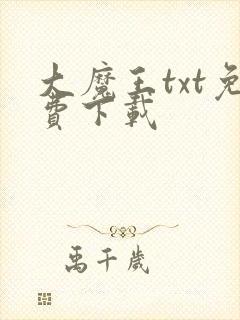 大魔王txt免
費下載
禹千歲